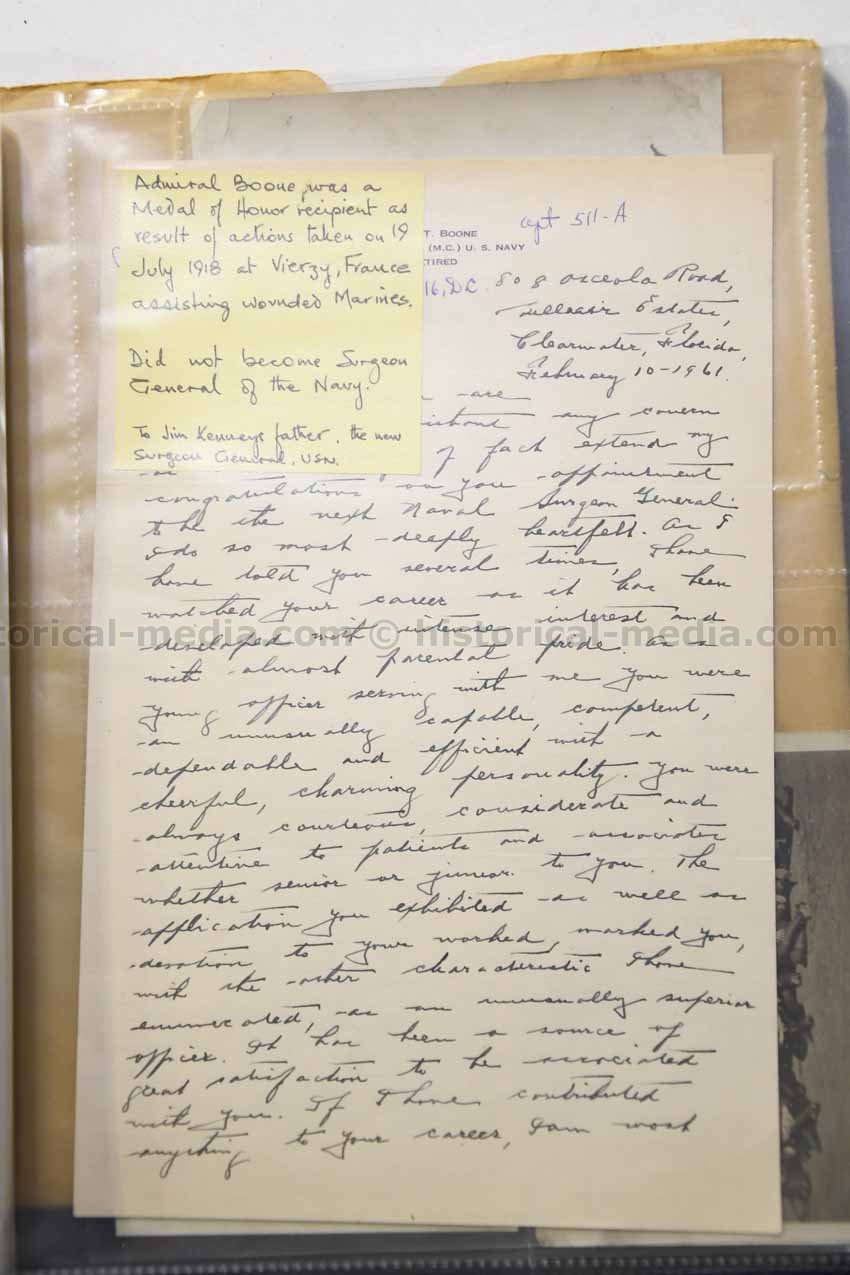 Admiral Boone, was a
Medal of Honor recipient as
result of actions taken on 19
July 1918 at Vierzy, France
assisting wounded Marines.
Did not become Surgeon
General of the Navy.
To Jim Kenneys father, the new
Surgeon General, USN.
T. BOONE
(M.C.) U. S. NAVY
TIRED
apt 511-A
16, DC.
808 Osceola Road,
Belleair Estates,
Clearwater, Florida,
February 10-1961.
are
without any
of fact extend my
congratulations on you appointment
to be the next Naval Surgeon General.
I do so most deeply heartfelt. As I
have told you several times, I have
watched your career as it has been
developed with intense interest and
with almost parental pride. As a
young officer serving with me you were
an unusually capable, competent,
dependable and efficient with a
cheerful, charming personality. You were
always courteous, considerate and
attentive to patients and associates
whether senior or junior to you. The
application you exhibited as well as
devotion to your worked, marked you,
with the other characteristic I have
enumerated, as an unusually superior
officer. It has been a source of
great satisfaction to be associated
with you. If I have contributed
anything to your career, I am most
torical-media.com © historical-media.com